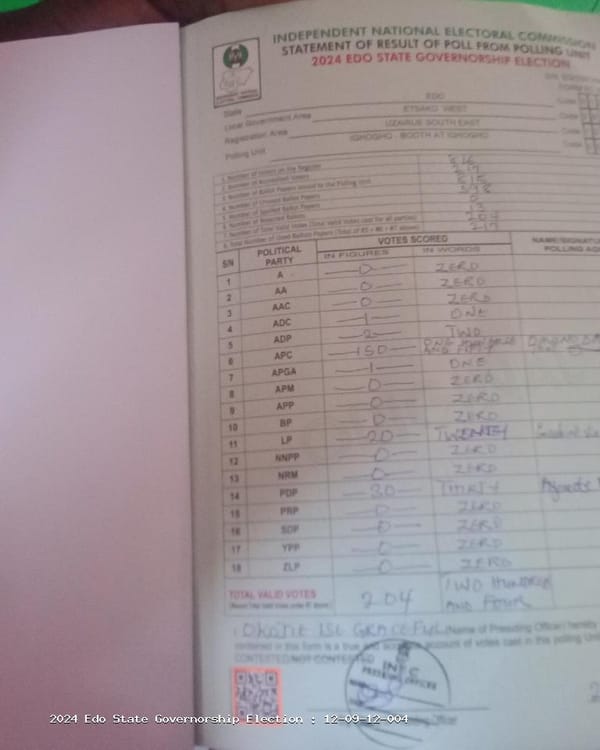 INDEPENDENT NATIONAL ELECTORAL COMMISSION
STATEMENT OF RESULT OF POLL FROM POLLING UNIT
2024 EDO STATE GOVERNORSHIP ELECTION
State EDO
Local Government Area ETSAKO WEST
Registration Area UZAIRUE SOUTH EAST
Polling Unit IGHOGHO - BOOTH AT IGHOGHO
1. Number of Voters on the Register 516
2. Number of Accredited Voters 217
3. Number of Ballot Papers Issued to the Polling Unit
4. Number of Unused Ballot Papers
5. Number of Spoiled Ballot Papers 0
6. Number of Rejected Ballots 13
7. Number of Total Valid Votes (Total Valid Votes cast for all parties) 204
8. Total Number of Used Ballot Papers (Total of #5 + #6 + #7 above) 217
SN POLITICAL PARTY VOTES SCORED
IN FIGURES IN WORDS NAME/SIGNATURE POLLING AG
1 A 0 ZERO
2 AA 0 ZERO
3 AAC 0 ZERO
4 ADC 1 ONE
5 ADP 2 TWO
6 APC 150 ONE HUNDRED AND FIFTY
7 APGA 1 ONE
8 APM 0 ZERO
9 APP 0 ZERO
10 BP 0 ZERO
11 LP 20 TWENTY
12 NNPP 0 ZERO
13 NRM 0 ZERO
14 PDP 30 THIRTY
15 PRP 0 ZERO
16 SDP 0 ZERO
17 YPP 0 ZERO
18 ZLP 0 ZERO
TOTAL VALID VOTES 204 TWO HUNDRED AND FOUR
(Name of Presiding Officer) hereby
contained in this form is a true and account of votes cast in this polling Unit
CONTESTED/NOT CONTESTED
INEC
PRESIDING OFFICER
Officer
2024 Edo State Governorship Election : 12-09-12-004